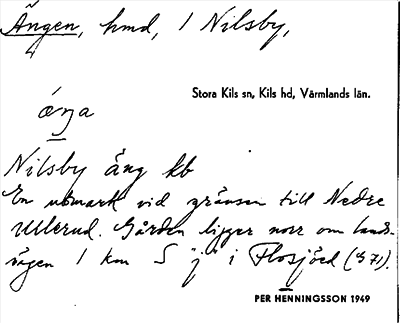 Ängen, hmd, 1 Nilsby,
Stora Kils sn, Kils hd, Värmlands län.
áŋa
Nilsby äng kb
En utmark vid gränsen till Nedre
Ullerud. Gården ligger norr om lands-
vägen 1 km S "j" i Flosjöed (571).
PER HENNINGSSON 1949